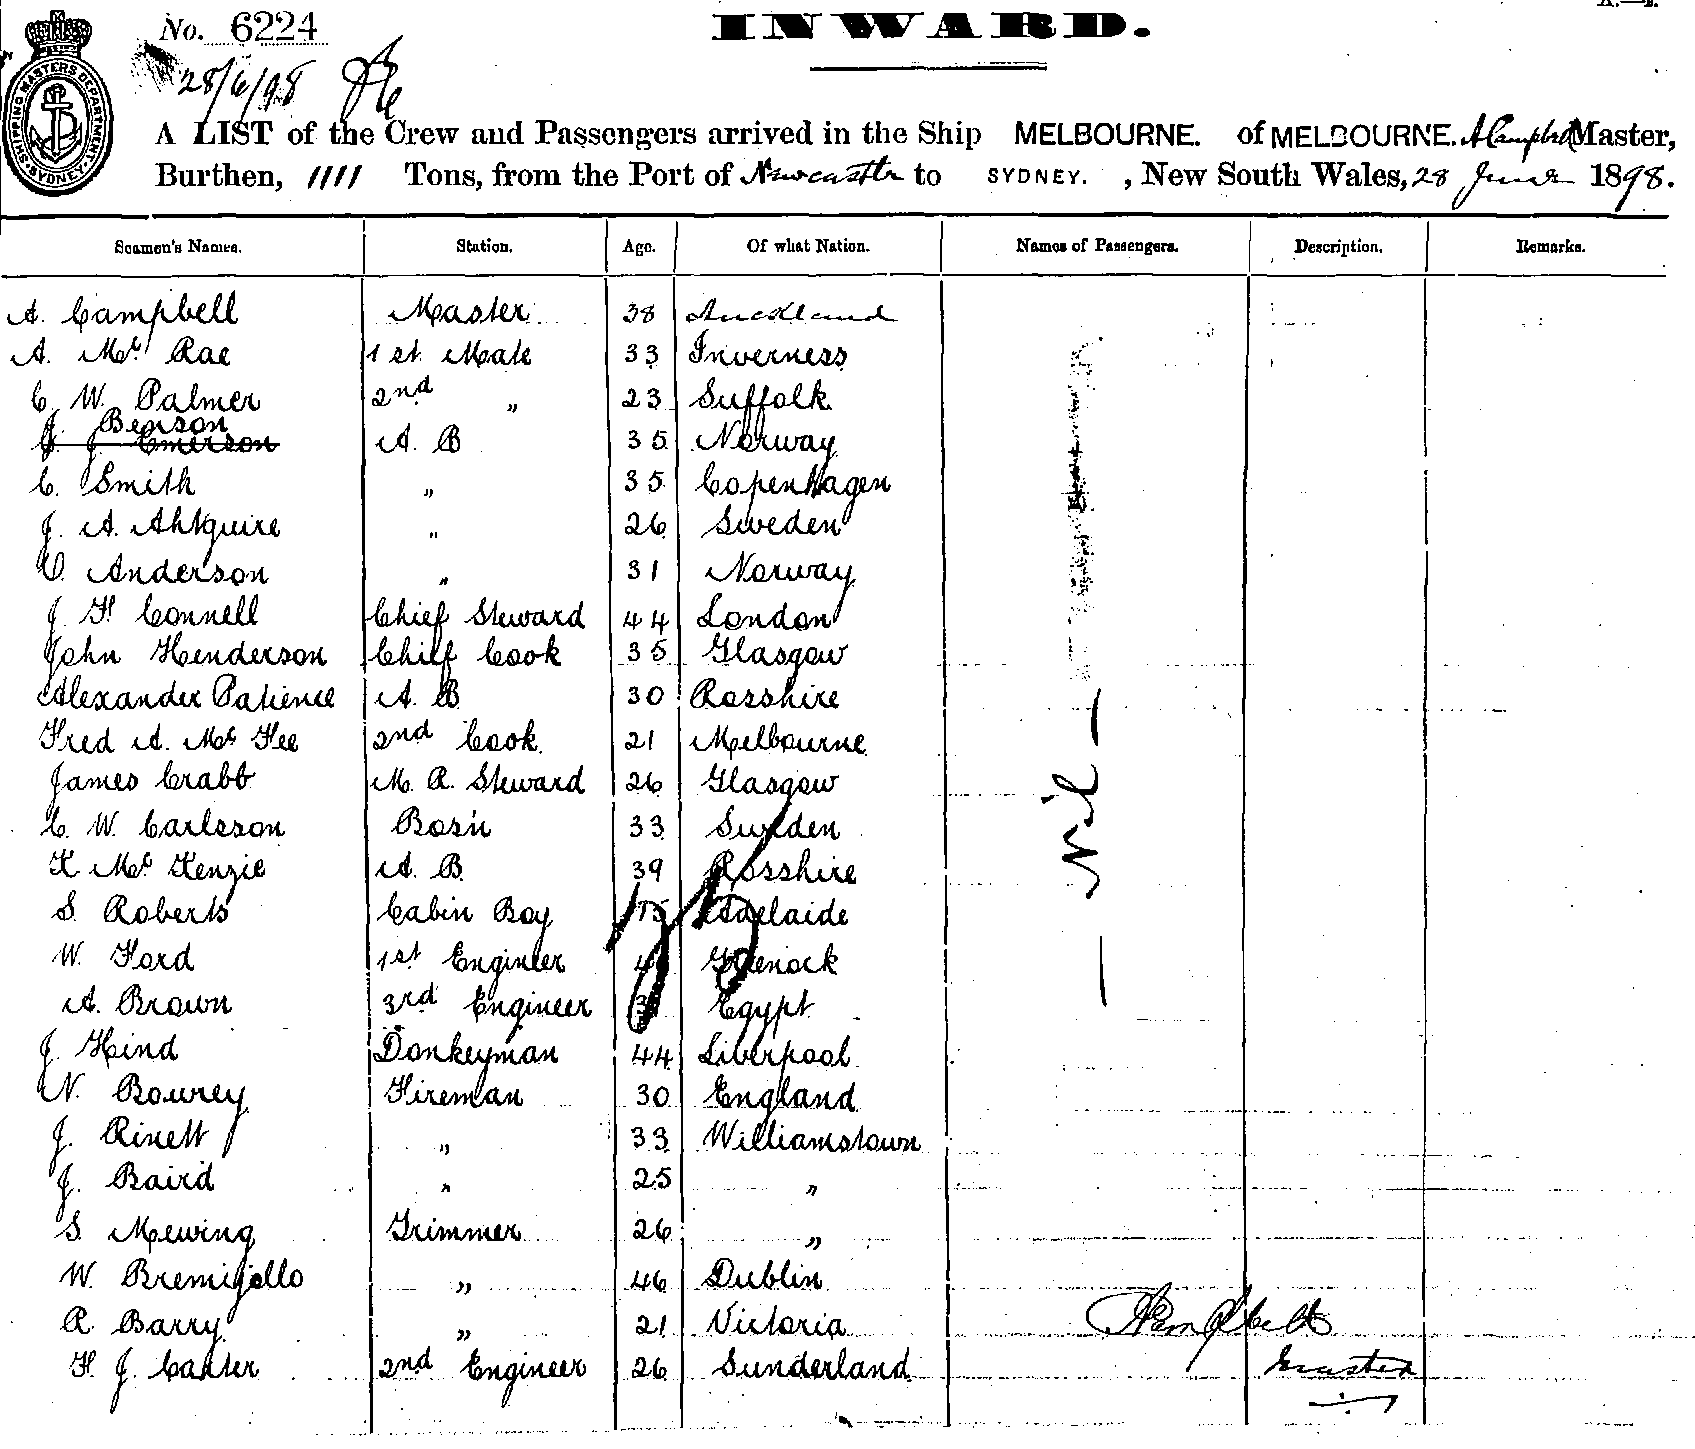 No. 6224
INWARD.
28/6/98
SHIPPING MASTERS DEPARTMENT SYDNEY
A LIST of the Crew and Passengers arrived in the Ship MELBOURNE. of MELBOURNE. A Campbell Master,
Burthen, 1111 Tons, from the Port of Newcastle to SYDNEY. , New South Wales, 28 June 1898.
Seamen's Names. Station. Age. Of what Nation. Names of Passengers. Description. Remarks.
A. Campbell Master 38 Auckland
A. Mc Rae 1st Mate 33 Inverness
C. W. Palmer 2nd " 23 Suffolk
J. Benson
J. Emerson A. B 35 Norway
C. Smith " 35 Copenhagen
J. A. Ahlquire " 26 Sweden
O. Anderson " 31 Norway
J. H. Connell Chief Steward 44 London
John Henderson Chief Cook 35 Glasgow
Alexander Patience A. B 30 Rosshire
Fred A. Mc Fee 2nd Cook. 21 Melbourne
James Crabb M. R. Steward 26 Glasgow
C. W. Carlsson Bosn 33 Sweden
K Mc Kenzie A. B. 39 Rosshire
S. Roberts Cabin Boy 15 Adelaide
W. Ford 1st Engineer Greenock
A. Brown 3rd Engineer Egypt
J. Hind Donkeyman 44 Liverpool
N. Bowrey Fireman 30 England
J. Rinett " 33 Williamstown
J. Baird " 25 "
S. Mewing Trimmer 26 "
W. Bremijello " 46 Dublin
R. Barry " 21 Victoria
H. J. Carter 2nd Engineer 26 Sunderland
— nil —
A Campbell
Master